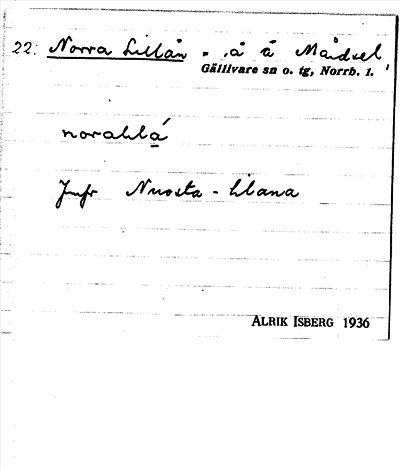 22. Norra Lillån - å å Maidsel,
Gällivare sn o. tg, Norrb. l.
norallå
Jmfr Nuorta - Lilana
ALRIK ISBERG 1936